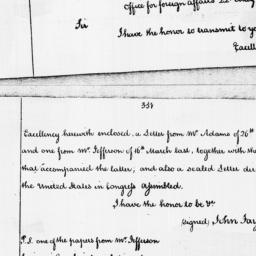 Office for foreign affairs 22
Sir
I have the honor to transmit to yo
Excell
331
Excellency herewith enclosed, a Letter from Mr Adams of 26th
and one from Mr. Jefferson of 16th March last, together with the
that accompanied the latter; and also a sealed Letter dir
the United States in Congress assembled.
I have the honor to be &c
(signed) John Jay
P.S. one of the papers from Mr. Jefferson